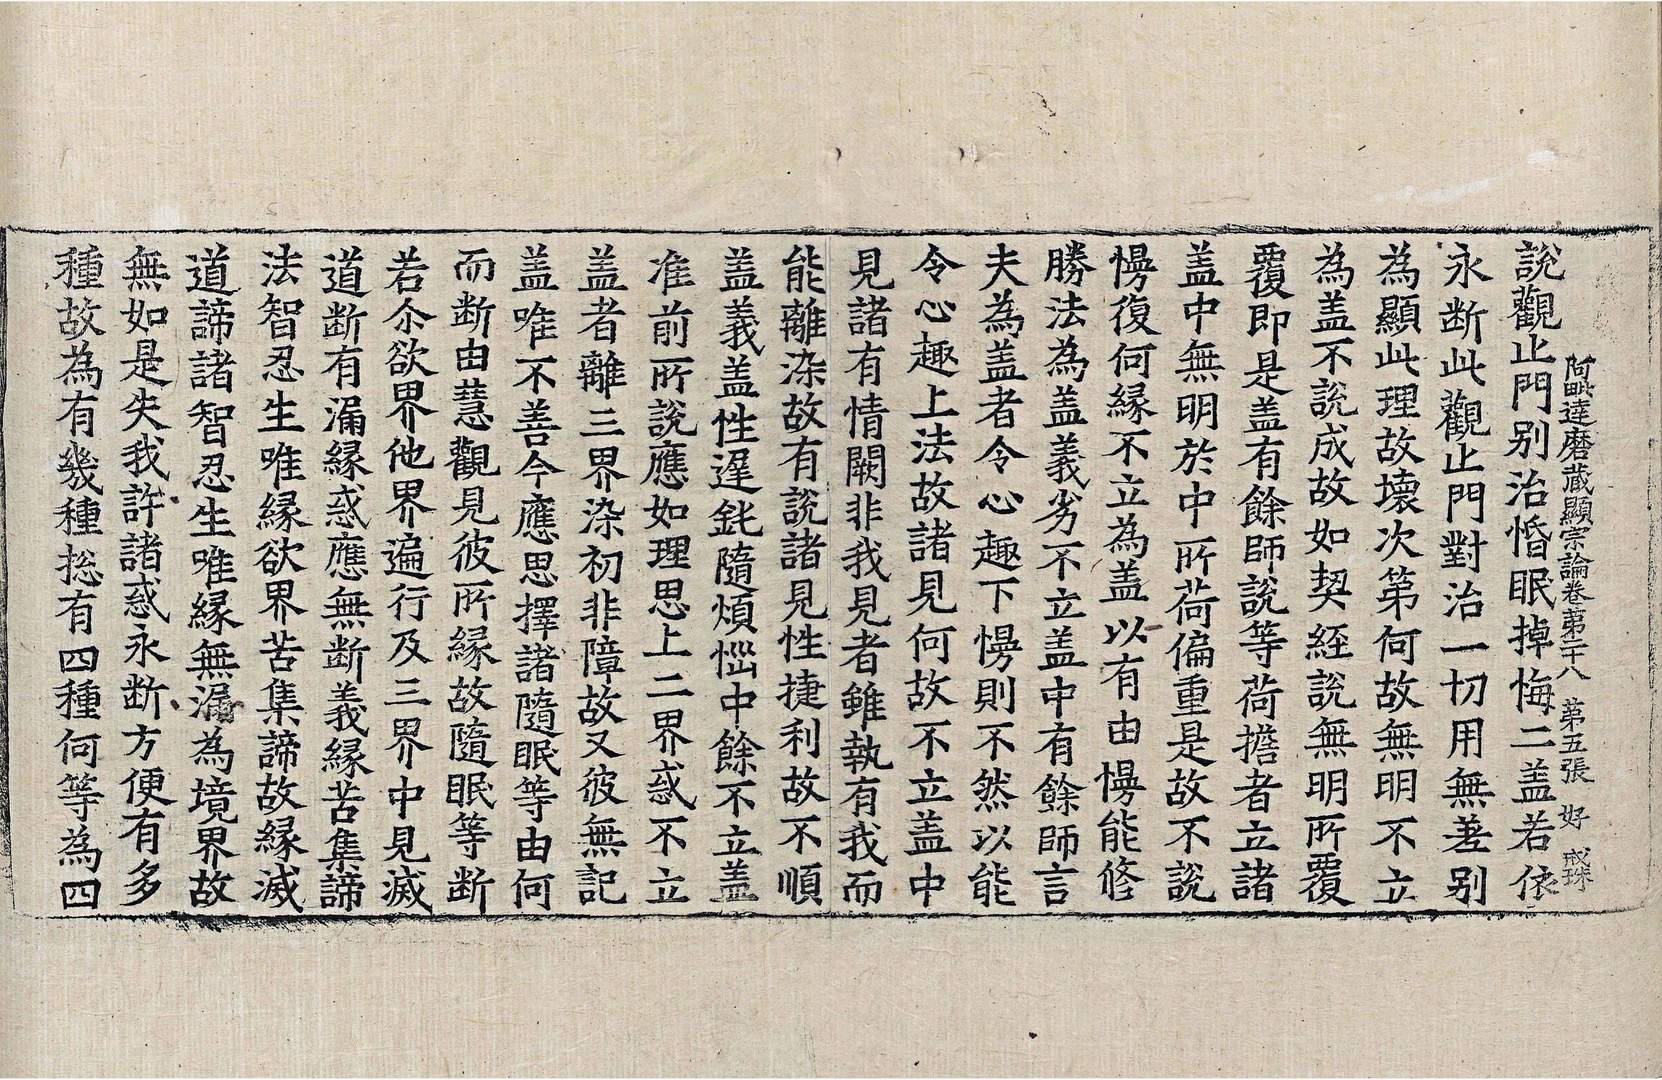 阿毗達磨藏顯宗論卷第二十八　第五張　好　戒珠
說觀止門別治惛眠掉悔二盖若依
永断此觀止門對治一切用無差别
為顯此理故壞次第何故無明不立
為盖不說成故如契経說無明所覆
覆即是盖有餘師說等荷擔者立諸
盖中無明於中所荷偏重是故不說
慢復何縁不立為盖以有由慢能修
勝法為盖義劣不立盖中有餘師言
夫為盖者令心趣下慢則不然以能
令心趣上法故諸見何故不立盖中
見諸有情闕非我見者雖執有我而
能離染故有說諸見性捷利故不順
盖義盖性遟鈍隨煩惱中餘不立盖
准前所說應如理思上二界惑不立
盖者離三界染初非障故又彼無記
盖唯不善今應思擇諸隨眠等由何
而断由慧觀見彼所縁故隨眠等断
若尒欲界他界遍行及三界中見滅
道断有漏縁惑應無断義縁苦集諦
法智忍生唯縁欲界苦集諦故縁滅
道諦諸智忍生唯縁無漏為境界故
無如是失我許諸惑永断方便有多
種故為有幾種捴有四種何等為四